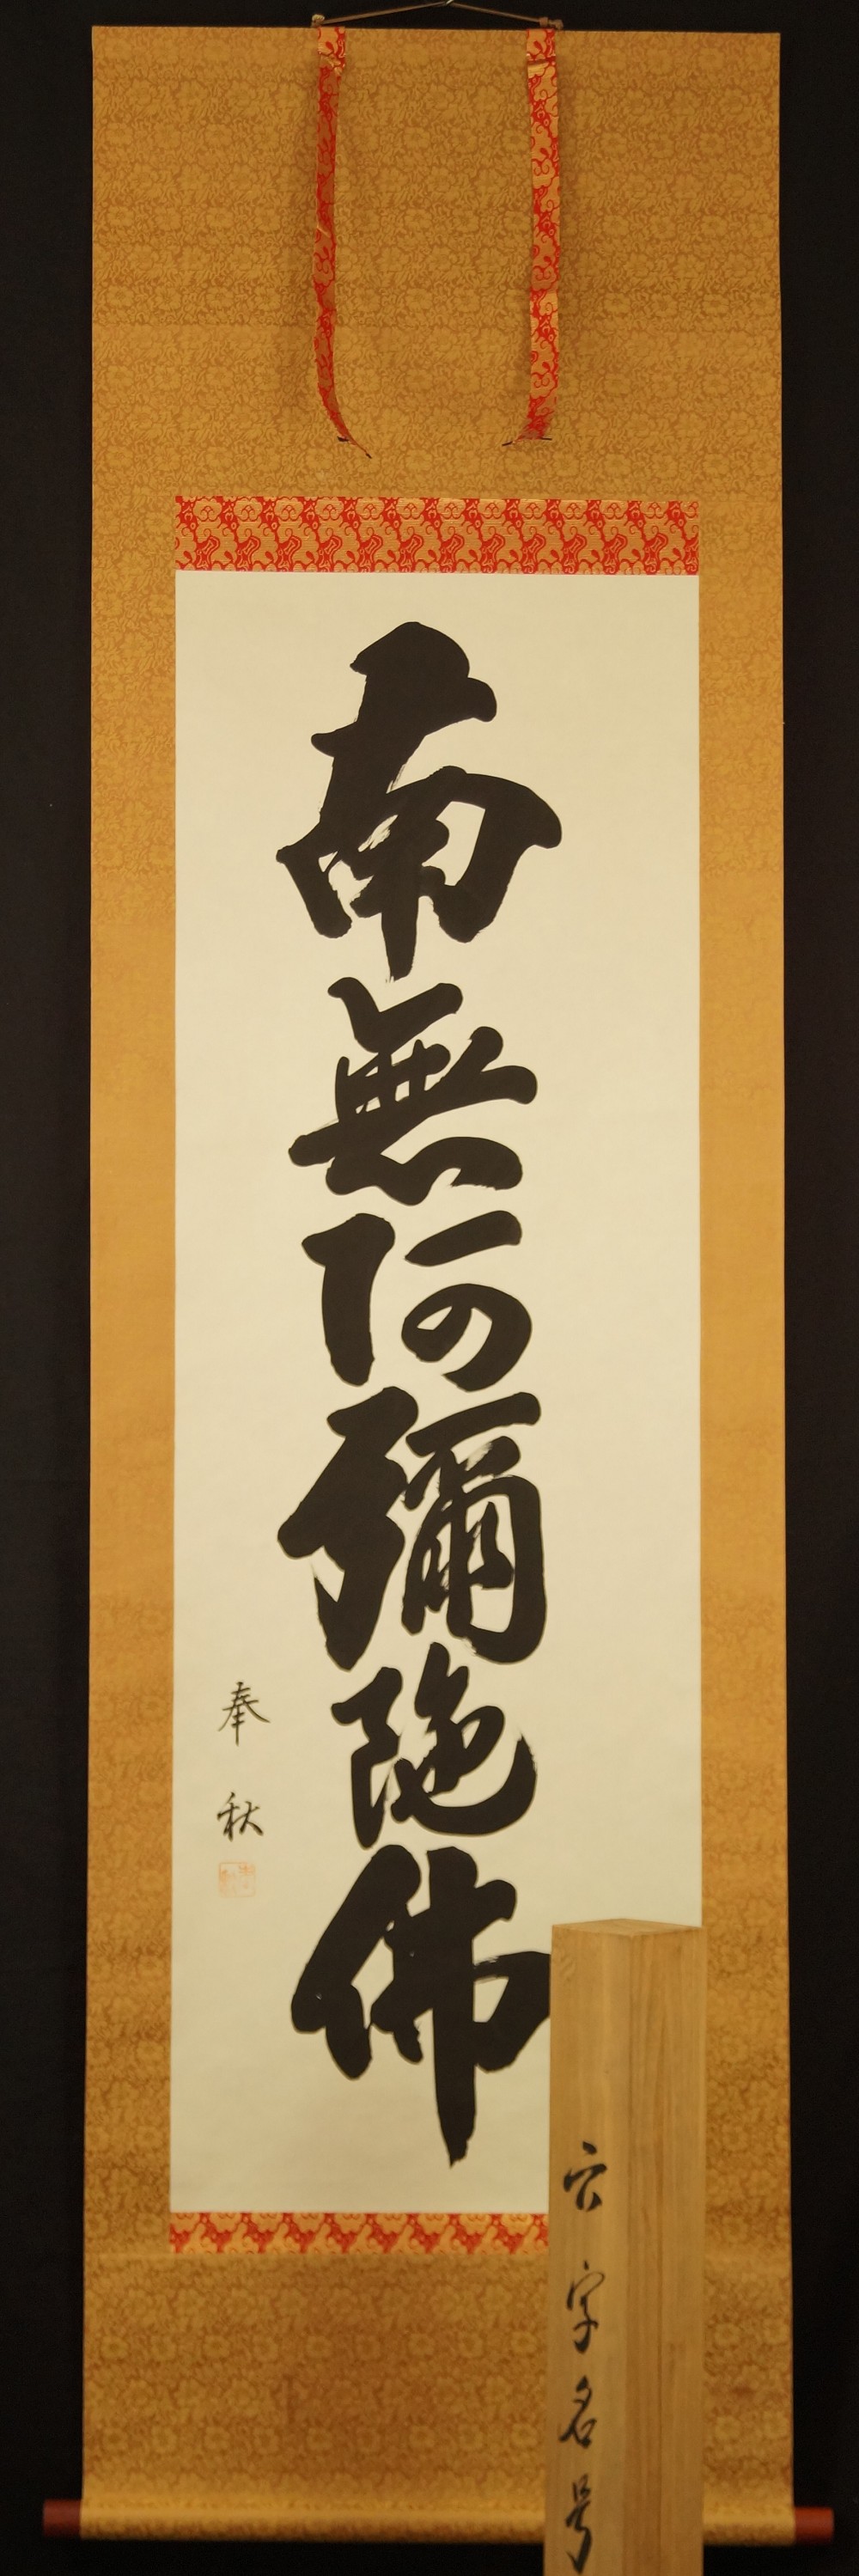 南無阿彌陀佛
奉秋
六字名号